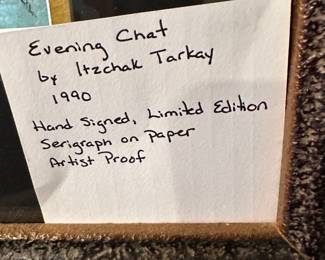 Evening Chat
by Itzchak Tarkay
1990
Hand Signed, Limited Edition
Serigraph on Paper
Artist Proof